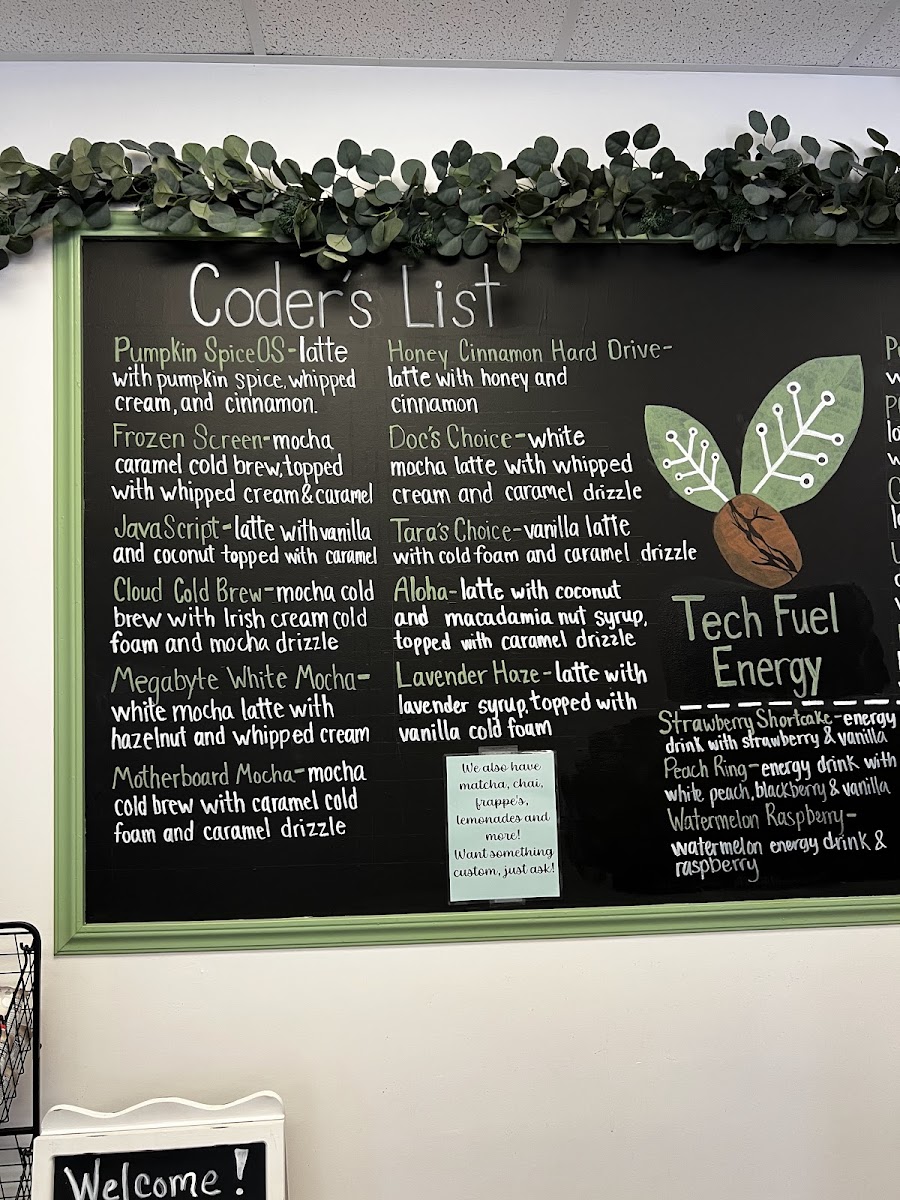 Coder's List
Pumpkin SpiceOS-latte
with pumpkin spice, whipped
cream, and cinnamon.
Frozen Screen-mocha
caramel cold brew, topped
with whipped cream & caramel
JavaScript-latte with vanilla
and coconut topped with caramel
Cloud Cold Brew-mocha cold
brew with Irish cream cold
foam and mocha drizzle
Megabyte White Mocha-
white mocha latte with
hazelnut and whipped cream
Motherboard Mocha-mocha
cold brew with caramel cold
foam and caramel drizzle
Honey Cinnamon Hard Drive-
latte with honey and
cinnamon
Doc's Choice-white
mocha latte with whipped
cream and caramel drizzle
Tara's Choice-vanilla latte
with cold foam and caramel drizzle
Aloha-latte with coconut
and macadamia nut syrup,
topped with caramel drizzle
Lavender Haze-latte with
lavender syrup, topped with
vanilla cold foam
We also have
matcha, chai,
frappe's,
lemonades and
more!
Want something
custom, just ask!
Tech Fuel
Energy
Strawberry Shortcake-energy
drink with strawberry & vanilla
Peach Ring-energy drink with
white peach, blackberry & vanilla
Watermelon Raspberry-
watermelon energy drink &
raspberry
Welcome!